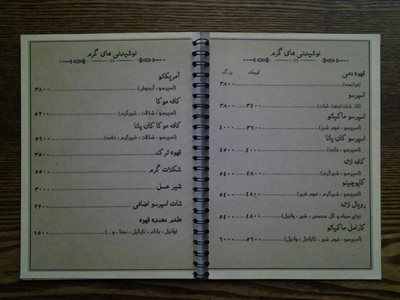 نوشیدنی های گرم
کوچک بزرگ
قهوه دمی
(فرانسه) ۳۸۰۰
اسپرسو
تک شات/جفت شات) ۳۴۰۰ ۳۸۰۰
اسپرسو ماکیاتو
(اسپرسو ، فوم شیر) ۳۶۰۰ ۴۰۰۰
اسپرسو کان پانا
(اسپرسو ، خامه) ۴۰۰۰ ۴۵۰۰
کافه لاته
(اسپرسو ، شیرگرم) ۴۸۰۰ ۵۴۰۰
کاپوچینو
(اسپرسو ، شیرگرم ، فوم شیر) ۴۸۰۰ ۵۴۰۰
رویال لاته
(چای سیاه و گل محمدی ، شیر ، وانیل) ۴۸۰۰ ۵۴۰۰
کارامل ماکیاتو
(اسپرسو ، فوم شیر ، کارامل ، وانیل) ۵۶۰۰ ۶۰۰۰
نوشیدنی های گرم
آمریکانو
(اسپرسو ، آبجوش) ۳۸۰۰
کافه موکا
(اسپرسو ، شکلات ، شیرگرم) ۵۲۰۰
کافه موکا کان پانا
(اسپرسو ، شکلات ، شیرگرم ، خامه) ۵۶۰۰
قهوه ترک ۳۵۰۰
شکلات گرم ۵۵۰۰
شیر عسل ۳۰۰۰
شات اسپرسو اضافی ۲۲۰۰
طعم دهنده قهوه
(وانیل ، بادام ، نارگیل ، نعنا و ..) ۱۵۰۰